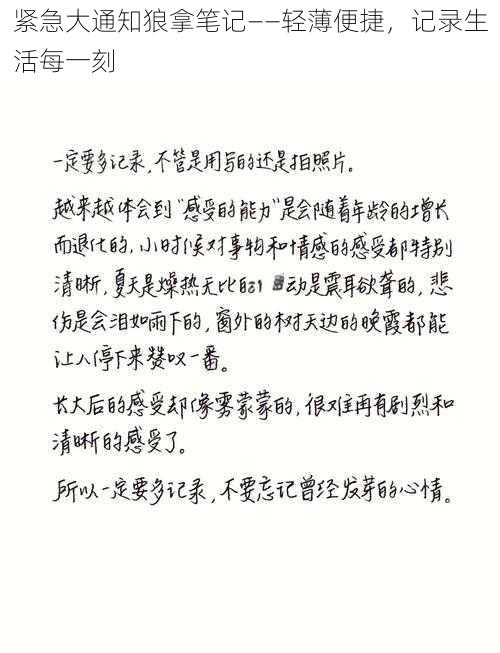 紧急大通知狼拿笔记——轻薄便捷，记录生
活每一刻
一定要多记录,不管是用写的还是拍照片。
越来越体会到“感受的能力”是会随着年龄的增长
而退化的,小时候对事物和情感的感受都特别
清晰,夏天是燥热无比的 动是震耳欲聋的,悲
伤是会泪如雨下的,窗外的树天边的晚霞都能
让人停下来赞叹一番。
长大后的感受却像雾蒙蒙的,很难再有剧烈和
清晰的感受了。
所以一定要多记录,不要忘记曾经发芽的心情。